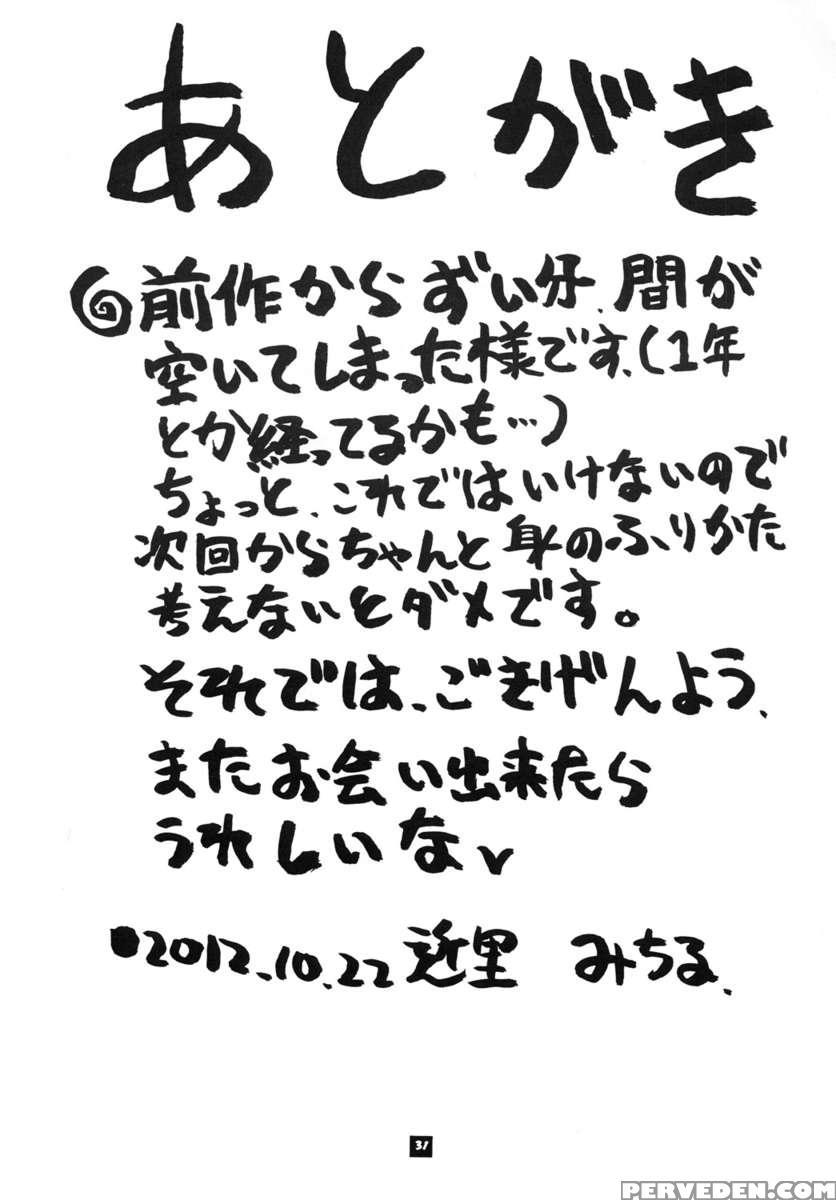 あとがき
前作からずい分、間が
空いてしまった様です、(1年
とか経ってるかも…)
ちょっと、これではいけないので
次回からちゃんと身のふりかた
考えないとダメです。
それでは、ごきげんよう、
またお会い出来たら
うれしいな
●2012.10.22 近里 みちる、
31
PERVEDEN.COM